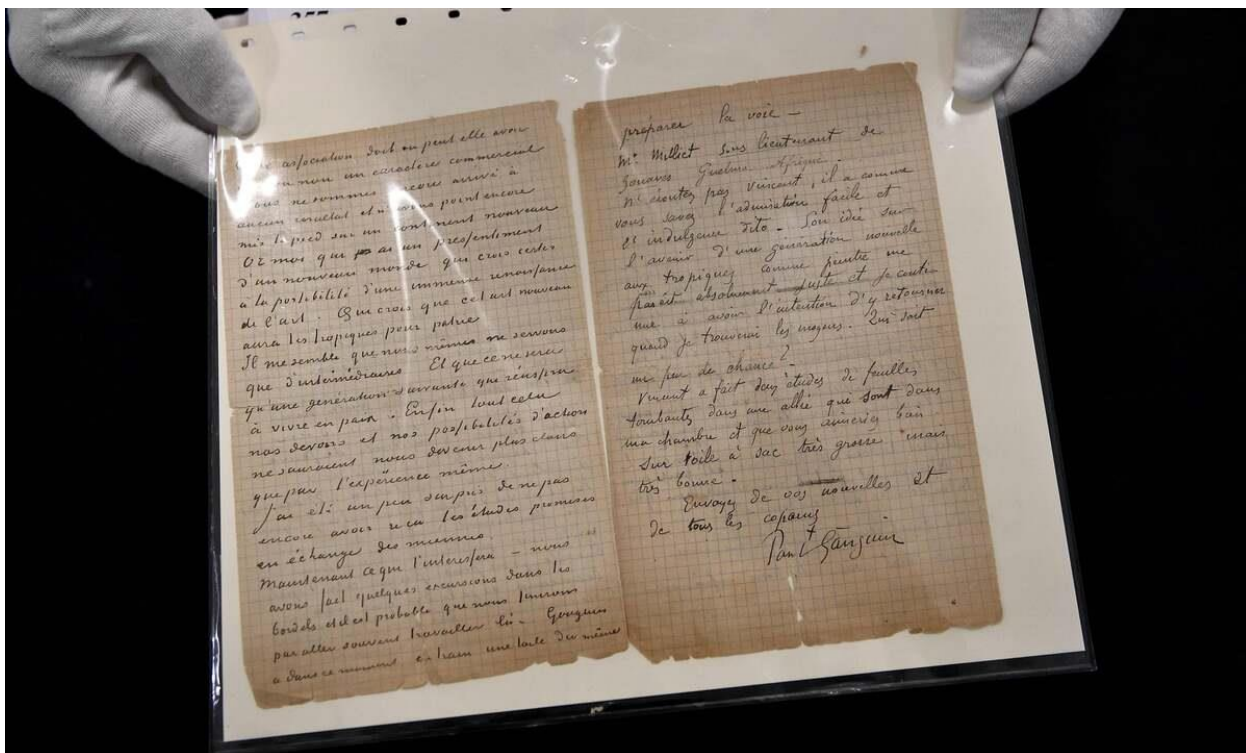 association doit ou peut elle avoir
ou non un caractère commercial
nous ne sommes encore arrivé à
aucun resultat et n'avons point encore
mis le pied sur un continent nouveau
Or moi qui ai un presentiment
d'un nouveau monde qui crois certes
à la possibilité d'une immense renaissance
de l'art. Qui crois que cet art nouveau
aura les tropiques pour patrie
Il me semble que nous mêmes ne servons
que d'intermédiaires Et que ce ne sera
qu'une génération suivante que réussira
à vivre en paix. Enfin tout cela
nos devoirs et nos possibilités d'action
ne sauraient nous devenir plus clairs
que par l'expérience même.
J'ai été un peu surpris de ne pas
encore avoir reçu les études promises
en échange des miennes.
Maintenant ce que t'interessera – nous
avons fait quelques excursions dans les
bordels et il est probable que nous finirons
par aller souvent travailler là. Gauguin
a dans ce moment en train une toile du même
préparer la voie –
Mr Milliet sous lieutenant de
Zouaves Guelma Afrique.
N'écoutez pas Vincent, il a comme
vous savez l'admiration facile et
l'indulgence dito. Son idée sur
l'avenir d'une génération nouvelle
aux tropiques comme peintre me
parait absolument juste et je conti
nue à avoir l'intention d'y retourner
quand je trouverai les moyens. Qui sait
un peu de chance?
Vincent a fait deux études de feuilles
tombantes dans une allée qui sont dans
ma chambre et que vous aimeriez bien
sur toile à sac très grosse mais
très bonne.
Envoyez de vos nouvelles et
de tous les copains
Paul Gauguin